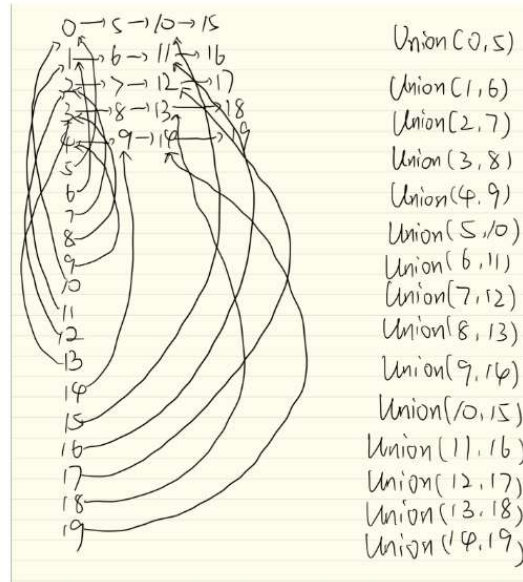 0→5→10→15
1→6→11→16
2→7→12→17
3→8→13→18
4→9→14→19
5
6
7
8
9
10
11
12
13
14
15
16
17
18
19
Union(0,5)
Union(1,6)
Union(2,7)
Union(3,8)
Union(4,9)
Union(5,10)
Union(6,11)
Union(7,12)
Union(8,13)
Union(9,14)
Union(10,15)
Union(11,16)
Union(12,17)
Union(13,18)
Union(14,19)